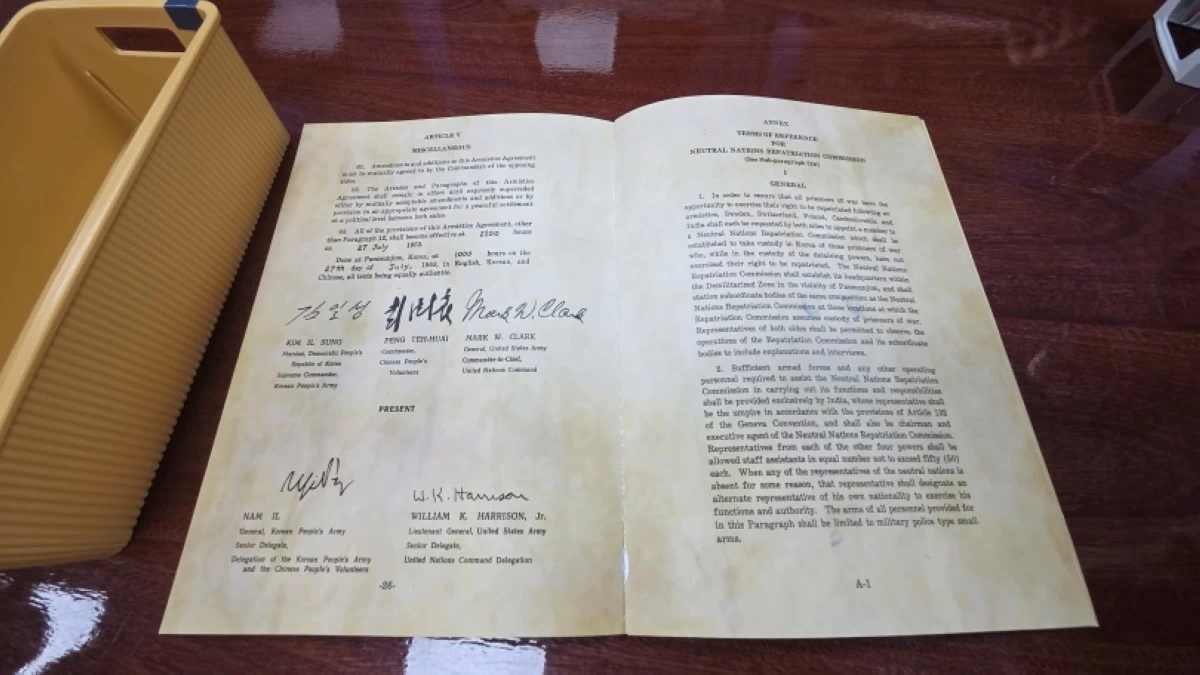 ARTICLE V
MISCELLANEOUS
61. Amendments and additions to this Armistice Agreement
must be mutually agreed to by the Commanders of the opposing
sides.
62. The Articles and Paragraphs of this Armistice
Agreement shall remain in effect until expressly superseded
either by mutually acceptable amendments and additions or by
provision in an appropriate agreement for a peaceful settlement
at a political level between both sides.
63. All of the provisions of this Armistice Agreement, other
than Paragraph 12, shall become effective at 2200 hours
on 27 July 1953.
Done at Panmunjom, Korea, at 1000 hours on the
27th day of July, 1953, in English, Korean, and
Chinese, all texts being equally authentic.
김일성 Mark W. Clark
KIM IL SUNG PENG TEH-HUAI MARK W. CLARK
Marshal, Democratic People's Commander, General, United States Army
Republic of Korea Chinese People's Commander-in-Chief,
Supreme Commander, Volunteers United Nations Command
Korean People's Army
PRESENT
W. K. Harrison
NAM IL WILLIAM K. HARRISON, Jr.
General, Korean People's Army Lieutenant General, United States Army
Senior Delegate, Senior Delegate,
Delegation of the Korean People's Army United Nations Command Delegation
and the Chinese People's Volunteers
-26-
ANNEX
TERMS OF REFERENCE
FOR
NEUTRAL NATIONS REPATRIATION COMMISSION
(See Sub-paragraph 51b)
I
GENERAL
1. In order to ensure that all prisoners of war have the
opportunity to exercise their right to be repatriated following an
armistice, Sweden, Switzerland, Poland, Czechoslovakia and
India shall each be requested by both sides to appoint a member to
a Neutral Nations Repatriation Commission which shall be
established to take custody in Korea of those prisoners of war
who, while in the custody of the detaining powers, have not
exercised their right to be repatriated. The Neutral Nations
Repatriation Commission shall establish its headquarters within
the Demilitarized Zone in the vicinity of Panmunjom, and shall
station subordinate bodies of the same composition as the Neutral
Nations Repatriation Commission at those locations at which the
Repatriation Commission assumes custody of prisoners of war.
Representatives of both sides shall be permitted to observe the
operations of the Repatriation Commission and its subordinate
bodies to include explanations and interviews.
2. Sufficient armed forces and any other operating
personnel required to assist the Neutral Nations Repatriation
Commission in carrying out its functions and responsibilities
shall be provided exclusively by India, whose representative shall
be the umpire in accordance with the provisions of Article 132
of the Geneva Convention, and shall also be chairman and
executive agent of the Neutral Nations Repatriation Commission.
Representatives from each of the other four powers shall be
allowed staff assistants in equal number not to exceed fifty (50)
each. When any of the representatives of the neutral nations is
absent for some reason, that representative shall designate an
alternate representative of his own nationality to exercise his
functions and authority. The arms of all personnel provided for
in this Paragraph shall be limited to military police type small
arms.
A-1